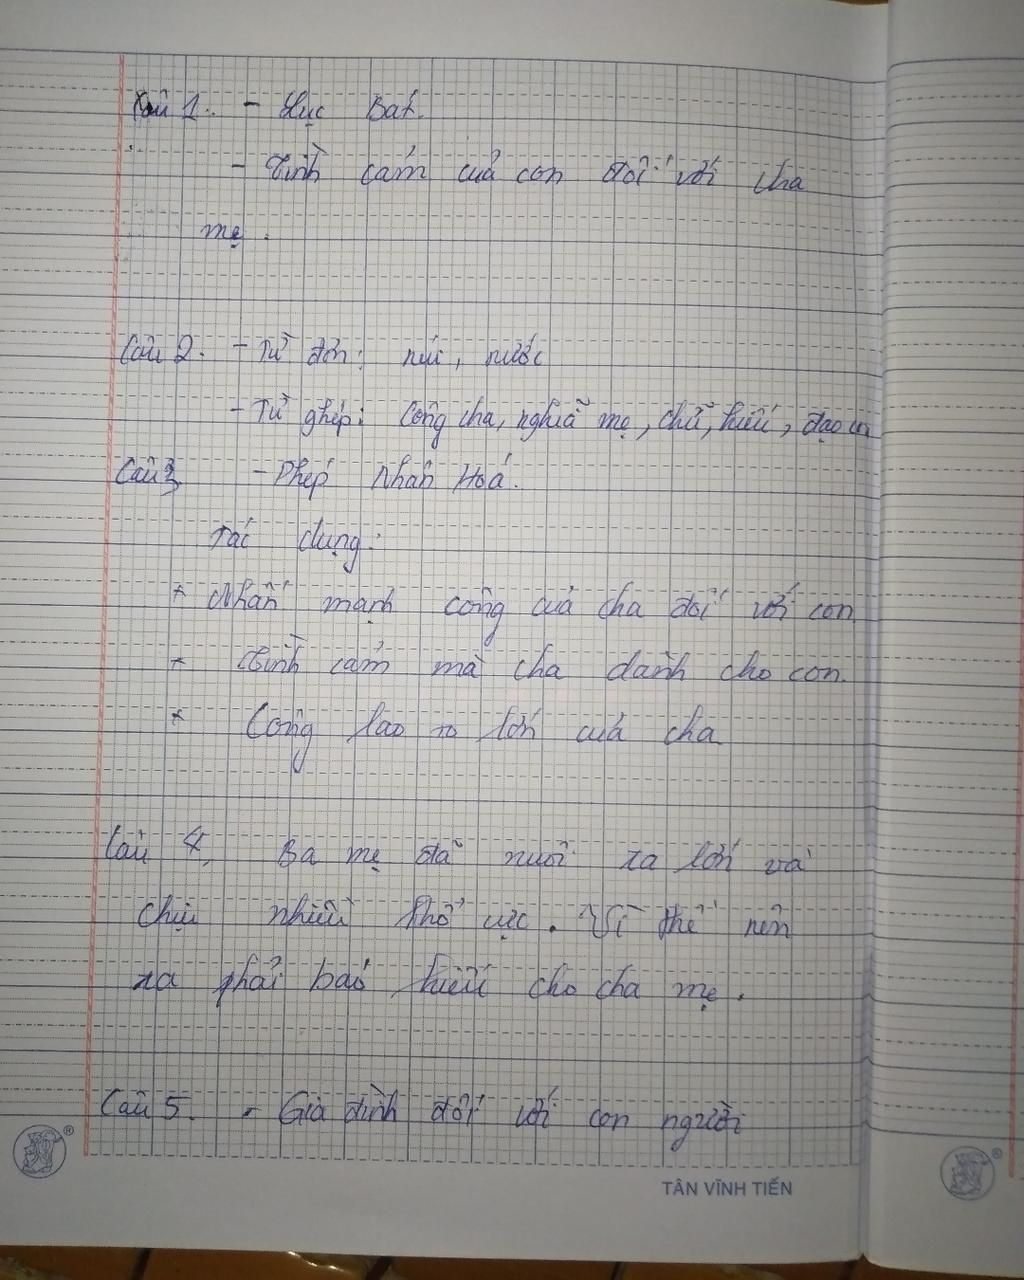 Câu 1. - Lục Bát.
- Tình cảm của con đối với cha
mẹ.
Câu 2. - Từ đơn: núi, nước
- Từ ghép: Công cha, nghĩa mẹ, chữ, hiếu, đạo con
Câu 3 - Phép Nhân Hoá.
Tác dụng:
* Nhấn mạnh công của cha đối với con.
* Tình cảm mà cha dành cho con.
* Công lao to lớn của cha
Câu 4. Ba mẹ đã nuôi ta lớn và
chịu nhiều khổ cực. Vì thế nên
ta phải báo hiếu cho cha mẹ.
Câu 5. - Gia đình đối với con người
TÂN VĨNH TIẾN